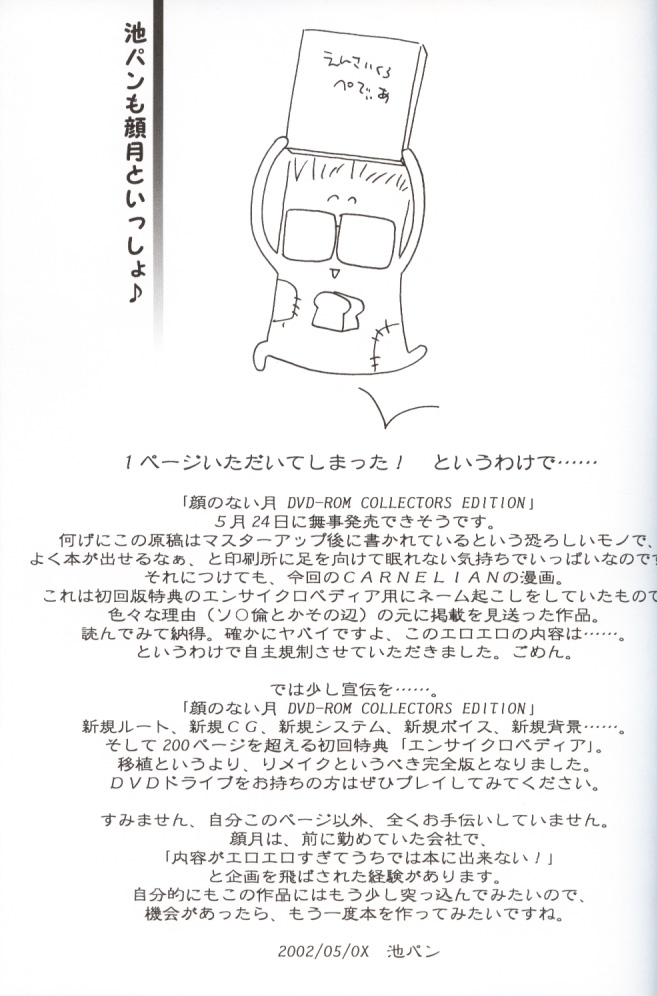 池パンも顔月といっしょ♪
えんさいくろ
ぺでぃあ
1ページいただいてしまった！　というわけで……
「顔のない月 DVD-ROM COLLECTORS EDITION」
５月24日に無事発売できそうです。
何げにこの原稿はマスターアップ後に書かれているという恐ろしいモノで、
よく本が出せるなぁ、と印刷所に足を向けて眠れない気持ちでいっぱいなのです
それにつけても、今回のＣＡＲＮＥＬＩＡＮの漫画。
これは初回版特典のエンサイクロペディア用にネーム起こしをしていたもので
色々な理由（ソ〇倫とかその辺）の元に掲載を見送った作品。
読んでみて納得。確かにヤバイですよ、このエロエロの内容は……。
というわけで自主規制させていただきました。ごめん。
では少し宣伝を……。
「顔のない月 DVD-ROM COLLECTORS EDITION」
新規ルート、新規ＣＧ、新規システム、新規ボイス、新規背景……。
そして200ページを超える初回特典「エンサイクロペディア」。
移植というより、リメイクというべき完全版となりました。
ＤＶＤドライブをお持ちの方はぜひプレイしてみてください。
すみません、自分このページ以外、全くお手伝いしていません。
顔月は、前に勤めていた会社で、
「内容がエロエロすぎてうちでは本に出来ない！」
と企画を飛ばされた経験があります。
自分的にもこの作品にはもう少し突っ込んでみたいので、
機会があったら、もう一度本を作ってみたいですね。
2002/05/0X　池パン